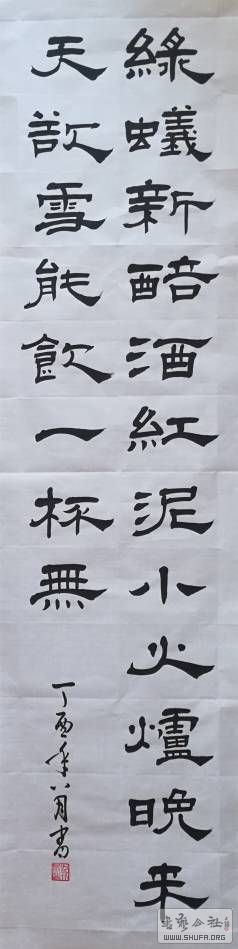 綠蟻新醅酒紅泥小火爐晚来
天欲雪能飲一杯無
丁酉年八月書
书艺公社
WWW.SHUFA.ORG